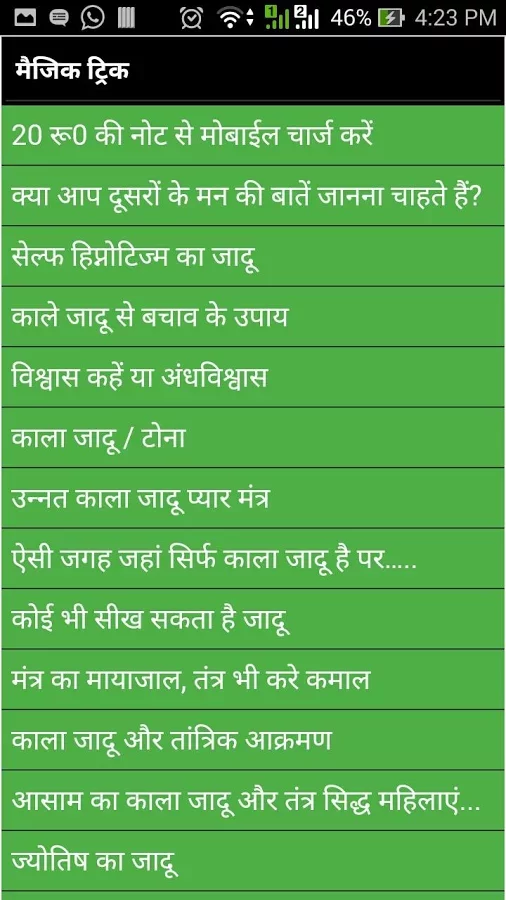 1 2 46% 4:23 PM
मैजिक ट्रिक
20 रू0 की नोट से मोबाईल चार्ज करें
क्या आप दूसरों के मन की बातें जानना चाहते हैं?
सेल्फ हिप्नोटिज्म का जादू
काले जादू से बचाव के उपाय
विश्वास कहें या अंधविश्वास
काला जादू / टोना
उन्नत काला जादू प्यार मंत्र
ऐसी जगह जहां सिर्फ काला जादू है पर.....
कोई भी सीख सकता है जादू
मंत्र का मायाजाल, तंत्र भी करे कमाल
काला जादू और तांत्रिक आक्रमण
आसाम का काला जादू और तंत्र सिद्ध महिलाएं...
ज्योतिष का जादू